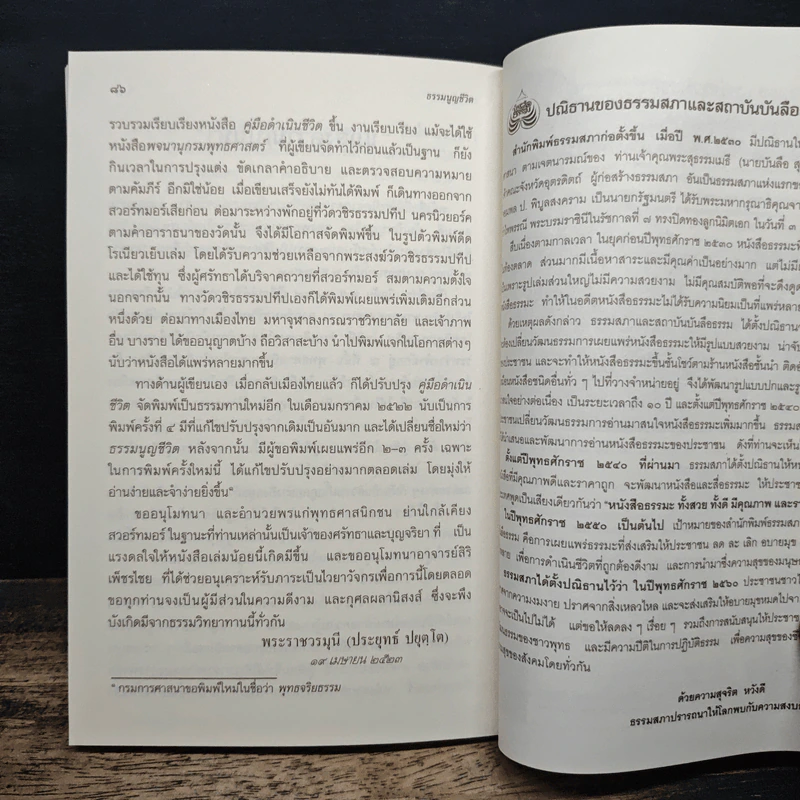 ๘๖
ธรรมนูญชีวิต
รวบรวมเรียบเรียงหนังสือ คู่มือดำเนินชีวิต ขึ้น งานเรียบเรียง แม้จะได้ใช้
หนังสือพจนานุกรมพุทธศาสตร์ ที่ผู้เขียนจัดทำไว้ก่อนแล้วเป็นฐาน ก็ยัง
กินเวลาในการปรุงแต่ง ขัดเกลาคำอธิบาย และตรวจสอบความหมาย
ตามคัมภีร์ อีกมิใช่น้อย เมื่อเขียนเสร็จยังไม่ทันได้พิมพ์ ก็เดินทางออกจาก
สวอร์ทมอร์เสียก่อน ต่อมาระหว่างพักอยู่ที่วัดวชิรธรรมปทีป นครนิวยอร์ค
ตามคำอาราธนาของวัดนั้น จึงได้มีโอกาสจัดพิมพ์ขึ้น ในรูปตัวพิมพ์ดีด
โรเนียวเย็บเล่ม โดยได้รับความช่วยเหลือจากพระสงฆ์วัดวชิรธรรมปทีป
และได้ใช้ทุน ซึ่งผู้ศรัทธาได้บริจาคถวายที่สวอร์ทมอร์ สมตามความตั้งใจ
นอกจากนั้น ทางวัดวชิรธรรมปทีปเองก็ได้พิมพ์เผยแพร่เพิ่มเติมอีกส่วน
หนึ่งด้วย ต่อมาทางเมืองไทย มหาจุฬาลงกรณราชวิทยาลัย และเจ้าภาพ
อื่น บางราย ได้ขออนุญาตบ้าง ถือวิสาสะบ้าง นำไปพิมพ์แจกในโอกาสต่างๆ
นับว่าหนังสือได้แพร่หลายมากขึ้น
ทางด้านผู้เขียนเอง เมื่อกลับเมืองไทยแล้ว ก็ได้ปรับปรุง คู่มือดำเนิน
ชีวิต จัดพิมพ์เป็นธรรมทานใหม่อีก ในเดือนมกราคม ๒๕๒๒ นับเป็นการ
พิมพ์ครั้งที่ ๔ มีที่แก้ไขปรับปรุงจากเดิมเป็นอันมาก และได้เปลี่ยนชื่อใหม่ว่า
ธรรมนูญชีวิต หลังจากนั้น มีผู้ขอพิมพ์เผยแพร่อีก ๒-๓ ครั้ง เฉพาะ
ในการพิมพ์ครั้งใหม่นี้ ได้แก้ไขปรับปรุงอย่างมากตลอดเล่ม โดยมุ่งให้
อ่านง่ายและจำง่ายยิ่งขึ้น*
ขออนุโมทนา และอำนวยพรแก่พุทธศาสนิกชน ย่านใกล้เคียง
สวอร์ทมอร์ ในฐานะที่ท่านเหล่านั้นเป็นเจ้าของศรัทธาและบุญจริยา ที่ เป็น
แรงดลใจให้หนังสือเล่มน้อยนี้เกิดมีขึ้น และขออนุโมทนาอาจารย์สิริ
เพ็ชรไชย ที่ได้ช่วยอนุเคราะห์รับภาระเป็นไวยาวัจกรเพื่อการนี้โดยตลอด
ขอทุกท่านจงเป็นผู้มีส่วนในความดีงาม และกุศลผลานิสงส์ ซึ่งจะพึง
บังเกิดมีจากธรรมวิทยาทานนี้ทั่วกัน
พระราชวรมุนี (ประยุทธ์ ปยุตฺโต)
๑๙ เมษายน ๒๕๒๓
* กรมการศาสนาขอพิมพ์ใหม่ในชื่อว่า พุทธจริยธรรม
ปณิธานของธรรมสภาและสถาบันบันลือ
สำนักพิมพ์ธรรมสภาก่อตั้งขึ้น เมื่อปี พ.ศ.๒๕๓๐ มีปณิธานใน
ตามเจตนารมณ์ของ ท่านเจ้าคุณพระสุธรรมเมธี (นายบันลือ สุ
คณะจังหวัดอุตรดิตถ์ ผู้ก่อสร้างธรรมสภา อันเป็นธรรมสภาแห่งแรกของ
ป. พิบูลสงคราม เป็นนายกรัฐมนตรี ได้รับพระมหากรุณาธิคุณจาก
ไพพรรณี พระบรมราชินีในรัชกาลที่ ๗ ทรงปิดทองลูกนิมิตเอก ในวันที่ ๓
สืบเนื่องตามกาลเวลา ในยุคก่อนปีพุทธศักราช ๒๕๓๐ หนังสือธรรมะที่
ท้องตลาด ส่วนมากมีเนื้อหาสาระ และมีคุณค่าเป็นอย่างมาก แต่ไม่มี
เพราะรูปเล่มส่วนใหญ่ไม่มีความสวยงาม ไม่มีคุณสมบัติพอที่จะดึงดูด
หนังสือธรรมะ ทำให้ในอดีตหนังสือธรรมะไม่ได้รับความนิยมเป็นที่แพร่หลาย
ด้วยเหตุผลดังกล่าว ธรรมสภาและสถาบันบันลือธรรม ได้ตั้งปณิธาน
เปลี่ยนวัฒนธรรมการเผยแผ่หนังสือธรรมะให้มีรูปแบบสวยงาม น่าจับ
ประชาชน และจะทำให้หนังสือธรรมะขึ้นชั้นโชว์ตามร้านหนังสือชั้นนำ ติดอั
หนังสือชนิดอื่นทั่ว ๆ ไปที่วางจำหน่ายอยู่ จึงได้พัฒนารูปแบบปกและรูป
อย่างต่อเนื่อง เป็นระยะเวลาถึง ๑๐ ปี และตั้งแต่ปีพุทธศักราช ๒๕๔๐
ประชาชนเปลี่ยนวัฒนธรรมการอ่านมาสนใจหนังสือธรรมะเพิ่มมากขึ้น ธรรมส
นำเสนอและพัฒนาการอ่านหนังสือธรรมะของประชาชน ดังที่ท่านจะเห็น
ตั้งแต่ปีพุทธศักราช ๒๕๔๐ ที่ผ่านมา ธรรมสภาได้ตั้งปณิธานให้
ที่มีคุณภาพดีและราคาถูก จะพัฒนาหนังสือและสื่อธรรมะ ให้ประชาชน
พูดเป็นเสียงเดียวกันว่า "หนังสือธรรมะ ทั้งสวย ทั้งดี มีคุณภาพ และรา
ในปีพุทธศักราช ๒๕๕๐ เป็นต้นไป เป้าหมายของสำนักพิมพ์ธรรมสภา
ธรรม คือการเผยแพร่ธรรมะที่ส่งเสริมให้ประชาชน ลด ละ เลิก อบายมุข
เพื่อการดำเนินชีวิตที่ถูกต้องดีงาม และการนำมาซึ่งความสุขของมนุษย
ธรรมสภาได้ตั้งปณิธานไว้ว่า ในปีพุทธศักราช ๒๕๖๐ ประชาชนชาวไ
จากความงมงาย ปราศจากสิ่งเหลวไหล และจะส่งเสริมให้อบายมุขหมดไปจา
จะเป็นไปไม่ได้ แต่ขอให้ลดลง ๆ เรื่อย ๆ รวมถึงการสนับสนุนให้ประชาชน
ธรรมของชาวพุทธ และมีความปีติในการปฏิบัติธรรม เพื่อความสุขของชี
สุขของสังคมโดยทั่วกัน
ด้วยความสุจริต หวังดี
ธรรมสภาปรารถนาให้โลกพบกับความสงบ